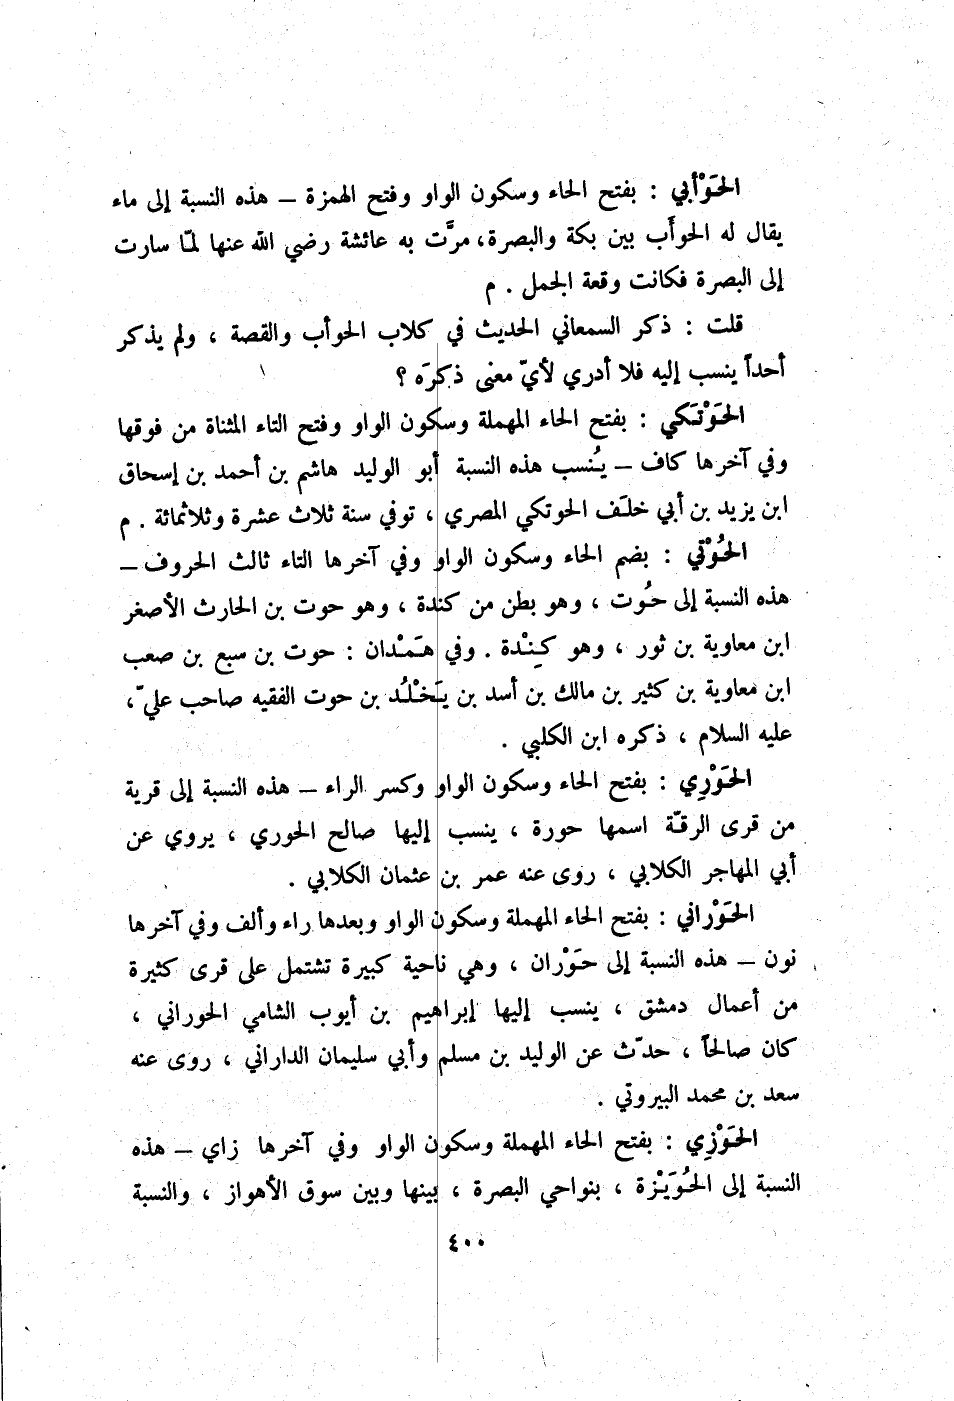 الحَوْأبي : بفتح الحاء وسكون الواو وفتح الهمزة – هذه النسبة إلى ماء
يقال له الحوأَب بين بكة والبصرة، مرَّت به عائشة رضي الله عنها لمّا سارت
إلى البصرة فكانت وقعة الجمل . م
قلت : ذكر السمعاني الحديث في كلاب الحوأب والقصة ، ولم يذكر
أحداً ينسب إليه فلا أدري لأيّ معنى ذكرَه ؟
الحَوْتَكي : بفتح الحاء المهملة وسكون الواو وفتح التاء المثناة من فوقها
وفي آخرها كاف – يُنسب هذه النسبة أبو الوليد هاشم بن أحمد بن إسحاق
ابن يزيد بن أبي خلَف الحوتكي المصري ، توفي سنة ثلاث عشرة وثلاثمائة . م
الحُوْتي : بضم الحاء وسكون الواو وفي آخرها التاء ثالث الحروف –
هذه النسبة إلى حُوت ، وهو بطن من كندة ، وهو حوت بن الحارث الأصغر
ابن معاوية بن ثور ، وهو كِنْدة . وفي هَمْدان : حوت بن سبع بن صعب
ابن معاوية بن كثير بن مالك بن أسد بن يَخْلُد بن حوت الفقيه صاحب عليّ ،
عليه السلام ، ذكره ابن الكلبي .
الحَوْرِي : بفتح الحاء وسكون الواو وكسر الراء – هذه النسبة إلى قرية
من قرى الرقّة اسمها حورة ، ينسب إليها صالح الحوري ، يروي عن
أبي المهاجر الكلابي ، روى عنه عمر بن عثمان الكلابي .
الحَوْراني : بفتح الحاء المهملة وسكون الواو وبعدها راء وألف وفي آخرها
نون – هذه النسبة إلى حَوْران ، وهي ناحية كبيرة تشتمل على قرى كثيرة
من أعمال دمشق ، ينسب إليها إبراهيم بن أيوب الشامي الحوراني ،
كان صالحاً ، حدّث عن الوليد بن مسلم وأبي سليمان الداراني ، روى عنه
سعد بن محمد البيروتي .
الحَوْزِي : بفتح الحاء المهملة وسكون الواو وفي آخرها زاي – هذه
النسبة إلى الحُوَيْزة ، بنواحي البصرة ، بينها وبين سوق الأهواز ، والنسبة
٤٠٠